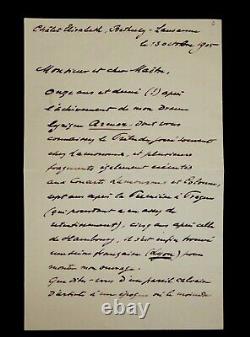 Châlet Élisabeth, Béthusy - Lausanne
le 13 octobre 1905
Monsieur et cher Maître,
Onze ans et demi (!) après
l'achèvement de mon Drame
lyrique dont vous
connaissez le Prélude
chez Lamoureux, et plusieurs
fragments également exécutés
aux Concerts Lamoureux et Colonne,
sept ans après la Première à Prague
(qui pourtant a eu assez de
retentissement), cinq ans après celle
de Hambourg, il s'est enfin trouvé
une scène française (Lyon) pour
monter mon ouvrage.
Que dites-vous d'un pareil calvaire
d'artiste à une époque où le moindre
© ebay